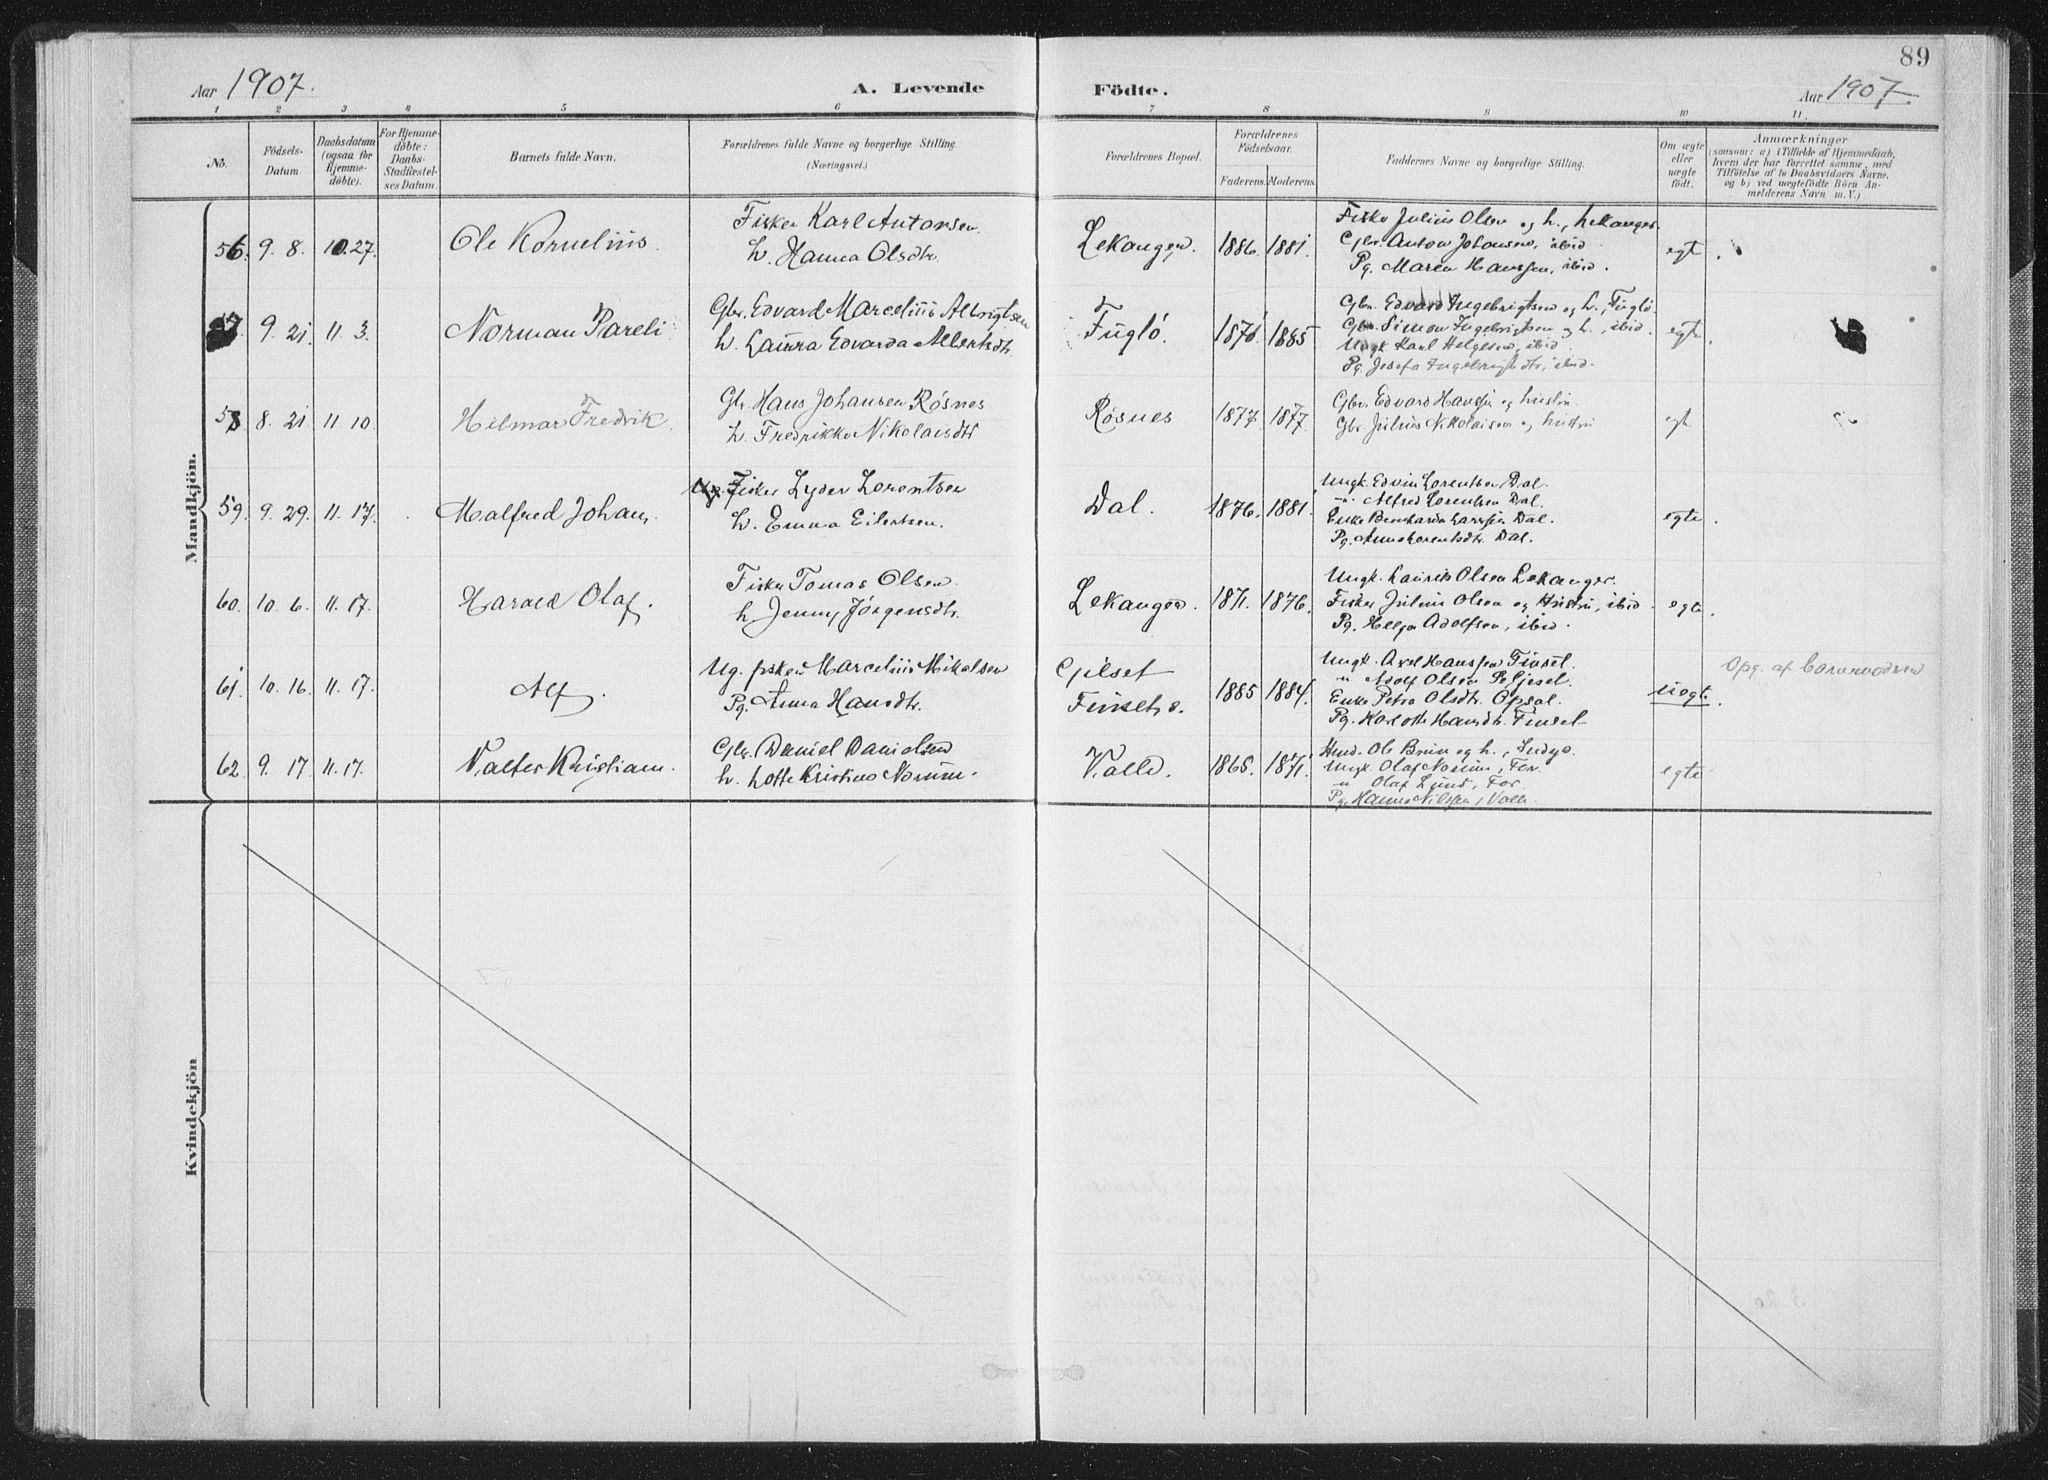 89
Aar 1907.
A. Levende
Födte.
Aar 1907.
1 2 3 4 5 6 7 8 9 10 11.
No.
Födsels-
Datum
Daabsdatum
(ogsaa for
Hjemme-
döbte).
For Hjemme-
döbte:
Daabs-
Stadfæstel-
ses Datum.
Barnets fulde Navn.
Forældrenes fulde Navne og borgerlige Stilling.
(Næringsvei.)
Forældrenes Bopæl.
Forældrenes
Födselsaar.
Faderens.
Moderens.
Faddernes Navne og borgerlige Stilling.
Om ægte
eller
uægte
födt.
Anmærkninger
(saasom: a) i Tilfælde af Hjemmedaab,
hvem der har forrettet samme, med
Tilföielse af to Daabsvidners Navne,
og b) ved uægtefödte Börn An-
melderens Navn m. V.)
Mandkjön.
56. 9. 8. 10.27. Ole Kornelius.
Fisker Karl Antonsen
h. Hanna Olsdtr.
Lekanger. 1886. 1881.
Fisker Julius Olsen og h., Lekanger
Gbr. Anton Johansen, ibid.
Pg. Maren Hanssen, ibid.
egte.
57. 9. 21. 11. 3. Norman Pareli
Gbr. Edvard Marcelius Albrigtsen
h. Laura Edvarda Albertsdtr.
Fuglö. 1876 1885
Gbr. Edvard Ingebrigtsen og h., Fuglö.
Gbr. Simon Ingebrigtsen og h., ibid.
Ungk Karl Helgesen, ibid.
Pg. Josefa Ingebrigtsdtr., ibid.
egte.
58 8. 21. 11. 10. Hilmar Fredrik.
Gbr. Hans Johansen Rösnes
h. Fredrikke Nikolaisdtr
Rösnes 1877. 1877.
Gbr. Edvard Hanssen og hustru.
Gbr. Julius Nikolaisen og hustru
egte
59. 9. 29. 11. 17. Malfred Johan.
Fisker Lyder Lorentsen
h. Emma Eilertsen.
Dal. 1876. 1881.
Ungk. Edvin Lorentsen Dal.
Alfred Lorentsen Dal.
Enke Bernharda Larssen Dal.
Pg. Anna Lorentsdtr. Dal.
egte.
60. 10. 6. 11. 17. Harald Olaf.
Fisker Tomas Olsen
h. Jenny Jörgensdtr.
Lekanger. 1871. 1876.
Ungk. Laurits Olsen Lekanger.
Fisker Julius Olsen og Hustru, ibid.
Pg. Helga Adolfsen, ibid.
egte.
61. 10. 16. 11. 17. Alf.
Ug. fisker Marcelius Mikalsen
Pg. Anna Hansdtr.
Gilset
1885 1884.
Ungk. Axel Hanssen Finset.
" Adolf Olsen
Enke Petra Olsdtr. Opsal.
Pg. Karlotte Hansdtr. Finset
uegte.
Opg. af barnemoderen
62. 9. 17. 11. 17. Valter Kristian.
Gbr. Daniel Danielsen
h. Lotte Kristine Norum.
Valle. 1865. 1871.
Ole Brun og h.,
Ungk. Olaf Norum, For.
" Olaf Lund, For.
Pg. Hanna Nilssen, Valle.
egte
Kvindekjön